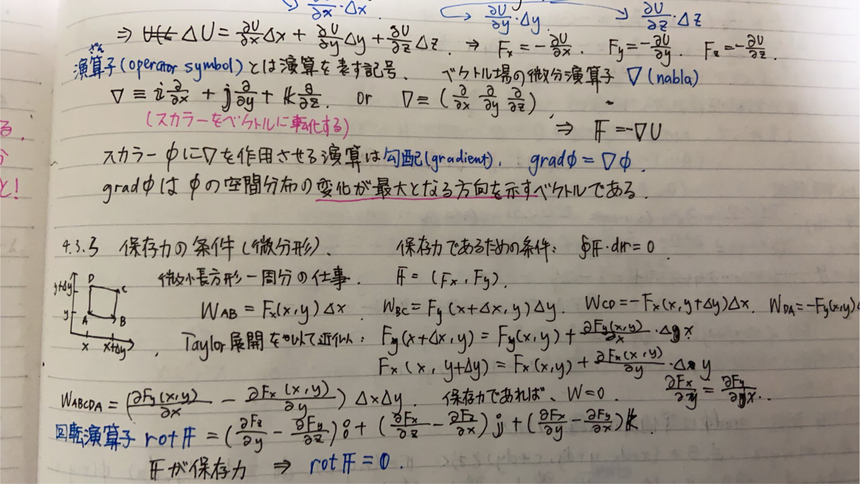 ∂x ・Δx ∂U/∂y・Δy ∂U/∂z・Δz
⇒ ΔU = ∂U/∂x Δx + ∂U/∂y Δy + ∂U/∂z Δz . ⇒ Fx = -∂U/∂x . Fy = -∂U/∂y . Fz = -∂U/∂z .
演算子(operator symbol)とは演算を表す記号. ベクトル場の微分演算子 ∇(nabla)
∇ ≡ i ∂/∂x + j ∂/∂y + k ∂/∂z . or ∇ ≡ (∂/∂x ∂/∂y ∂/∂z) .
(スカラーをベクトルに転化する) ⇒ F = -∇U
スカラー φに∇を作用させる演算は勾配(gradient). gradφ = ∇φ .
gradφは φの空間分布の変化が最大となる方向を示すベクトルである.
4.3.3 保存力の条件(微分形). 保存力であるための条件: ∮F・dr = 0 .
微小長方形一周分の仕事. F = (Fx, Fy).
y+Δy D C
y A B
x x+Δy
WAB = Fx(x,y)Δx . WBC = Fy(x+Δx, y)Δy . WCD = -Fx(x, y+Δy)Δx . WDA = -Fy(x,y)
Taylor展開を用いて近似: Fy(x+Δx, y) = Fy(x,y) + ∂Fy(x,y)/∂x ・Δx
Fx(x, y+Δy) = Fx(x,y) + ∂Fx(x,y)/∂y ・Δy
WABCDA = (∂Fy(x,y)/∂x - ∂Fx(x,y)/∂y) ΔxΔy . 保存力であれば、W=0 . ∂Fx/∂y = ∂Fy/∂x .
回転演算子 rot F = (∂Fz/∂y - ∂Fy/∂z) i + (∂Fx/∂z - ∂Fz/∂x) j + (∂Fx/∂y - ∂Fy/∂x) k .
Fが保存力 ⇒ rot F = 0 .